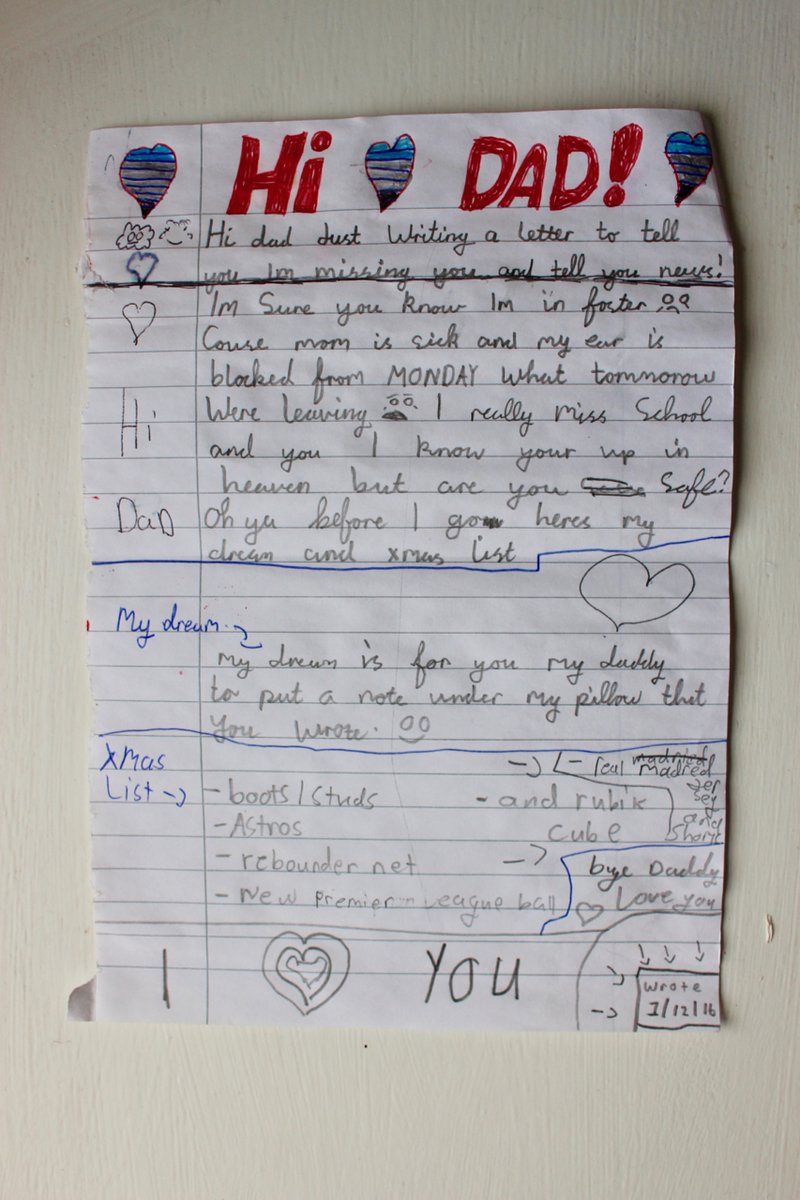 Hi DAD!
Hi dad Just Writing a letter to tell
you Im missing you and tell you news!
Im Sure you know Im in foster
Couse mom is sick and my ear is
blocked from MONDAY What tommorow
Hi
Were leaving I really miss School
and you I know your up in
heaven but are you Safe?
DaD
Oh ya before I go heres my
dream and xmas list
My dream
My dream is for you my daddy
to put a note under my pillow that
you wrote.
XMas
List
- boots/studs
- Astros
- rebounder net
- New Premier-League ball
- real madred
jer
sey
and
Shorts
- and rubik
cube
bye Daddy
Love you
I YOU
wrote
1/12/16